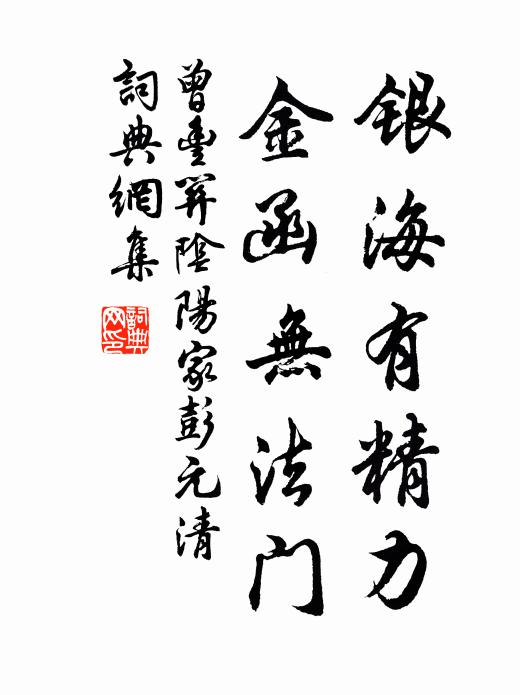 銀海有精力
金函無法門
曾豐羿陰陽家彭元清
詞典網集
詞典
网印